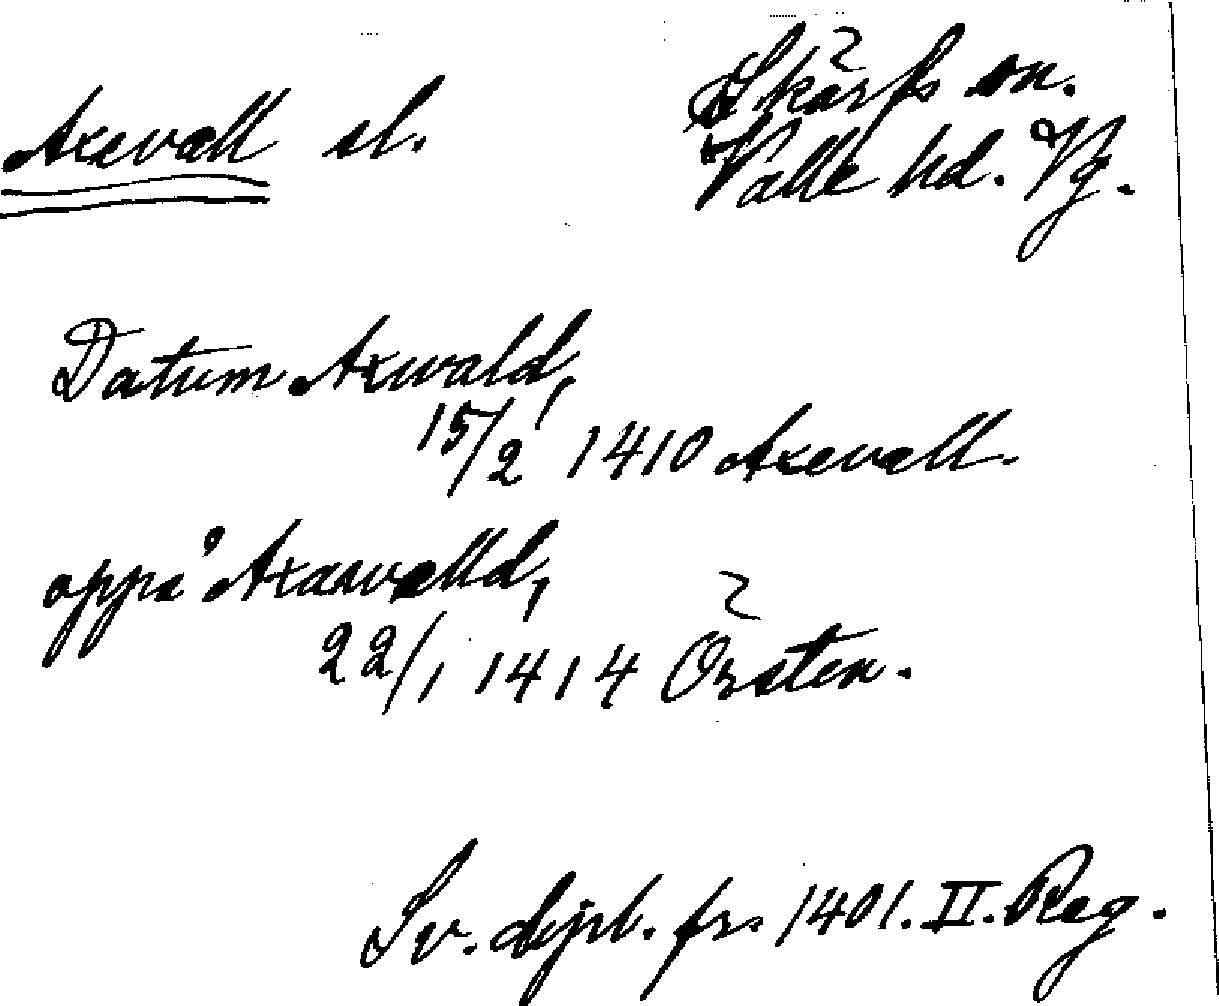 Axevall sl.
Skärfs sn.
Valle hd. Vg.
Datum Axwald,
15/2 1410 Axevall.
oppa Axaswalld,
22/1 1414 Örsten.
Sv. dipl. fr. 1401. II. Reg.